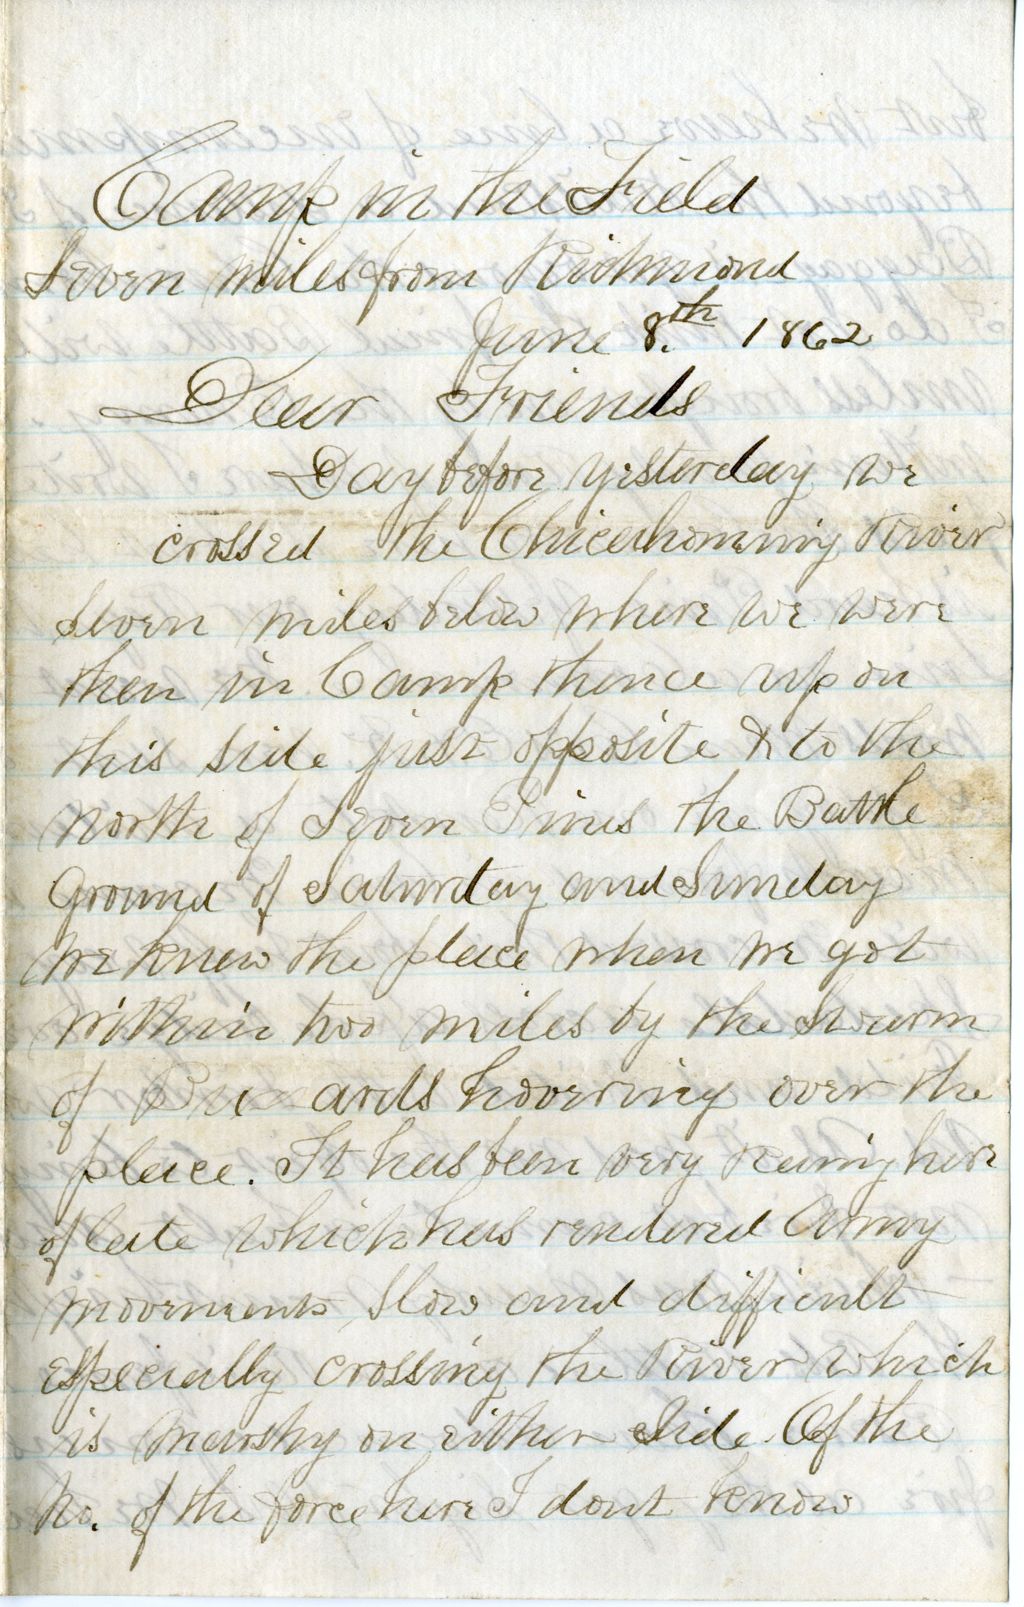 Camp in the Field
Seven miles from Richmond
June 8.th 1862
Dear Friends
Day before yesterday we
crossed the Chicahominy River
seven miles below where we were
then in Camp thence up on
this side just opposite & to the
north of Seven Pines the Battle
Ground of Saturday and Sunday
We knew the place when we got
within two miles by the Swarm
of Buzards hovering over the
place. It has been very rainy here
of late which has rendered Army
movements slow and difficult
especially crossing the River which
is marshy on either Side. Of the
No. of the force here I dont know